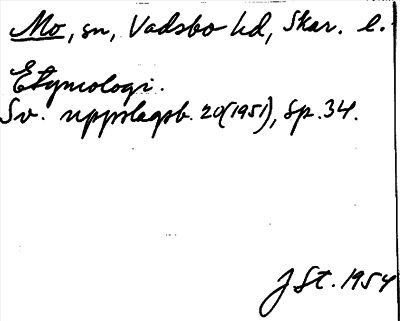 Mo, sn, Vadsbo hd, Skar. l.
Etymologi.
Sv. uppslagsb. 20(1951), sp. 34.
J St. 1954